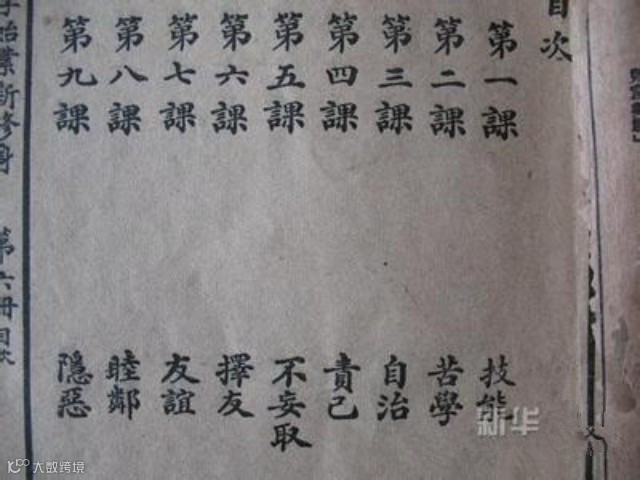 目次
第一課 技能
第二課 苦學
第三課 自治
第四課 責己
第五課 不妄取
第六課 擇友
第七課 友誼
第八課 睦鄰
第九課 隱惡
子始業新修身 第六冊目次
新华
大数跨境